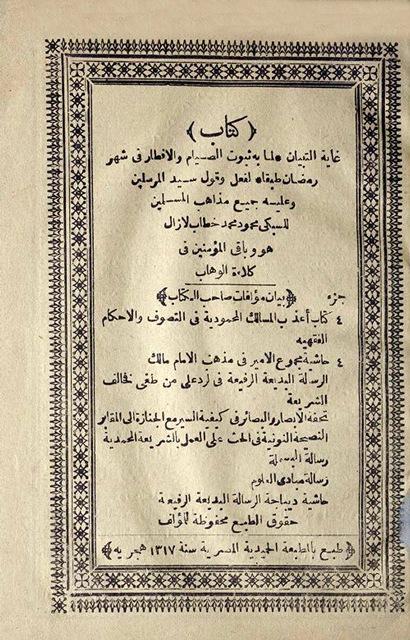 ﴿ كتاب ﴾
غاية التبيان * لما به ثبوت الصيام والافطار فى شهر
رمضان طبقا * لفعل وقول سيد المرسلين
وعليه جميع مذاهب المسلمين
للسبكى محمود محمد خطاب لازال
هو وباقى المؤمنين فى
كلاءة الوهاب
جزء ﴿ بيان مؤلفات صاحب الكتاب ﴾
٤ كتاب أعذب المسالك المحمودية فى التصوف والاحكام
الفقهيه
٤ حاشية مجموع الامير فى مذهب الامام مالك
الرسالة البديعة الرفيعة فى الرد على من طغى فخالف
الشريعة
تحفة الابصار والبصائر فى كيفية السير مع الجنازة الى المقابر
النصيحة النونية فى الحث على العمل بالشريعة المحمدية
رسالة البسملة
رسالة مبادى العلوم
حاشية ديباجة الرسالة البديعة الرفيعة
حقوق الطبع محفوظة للمؤلف
﴿ طبع بالمطبعة الحميدية المصرية سنة ١٣١٧ هجريه ﴾